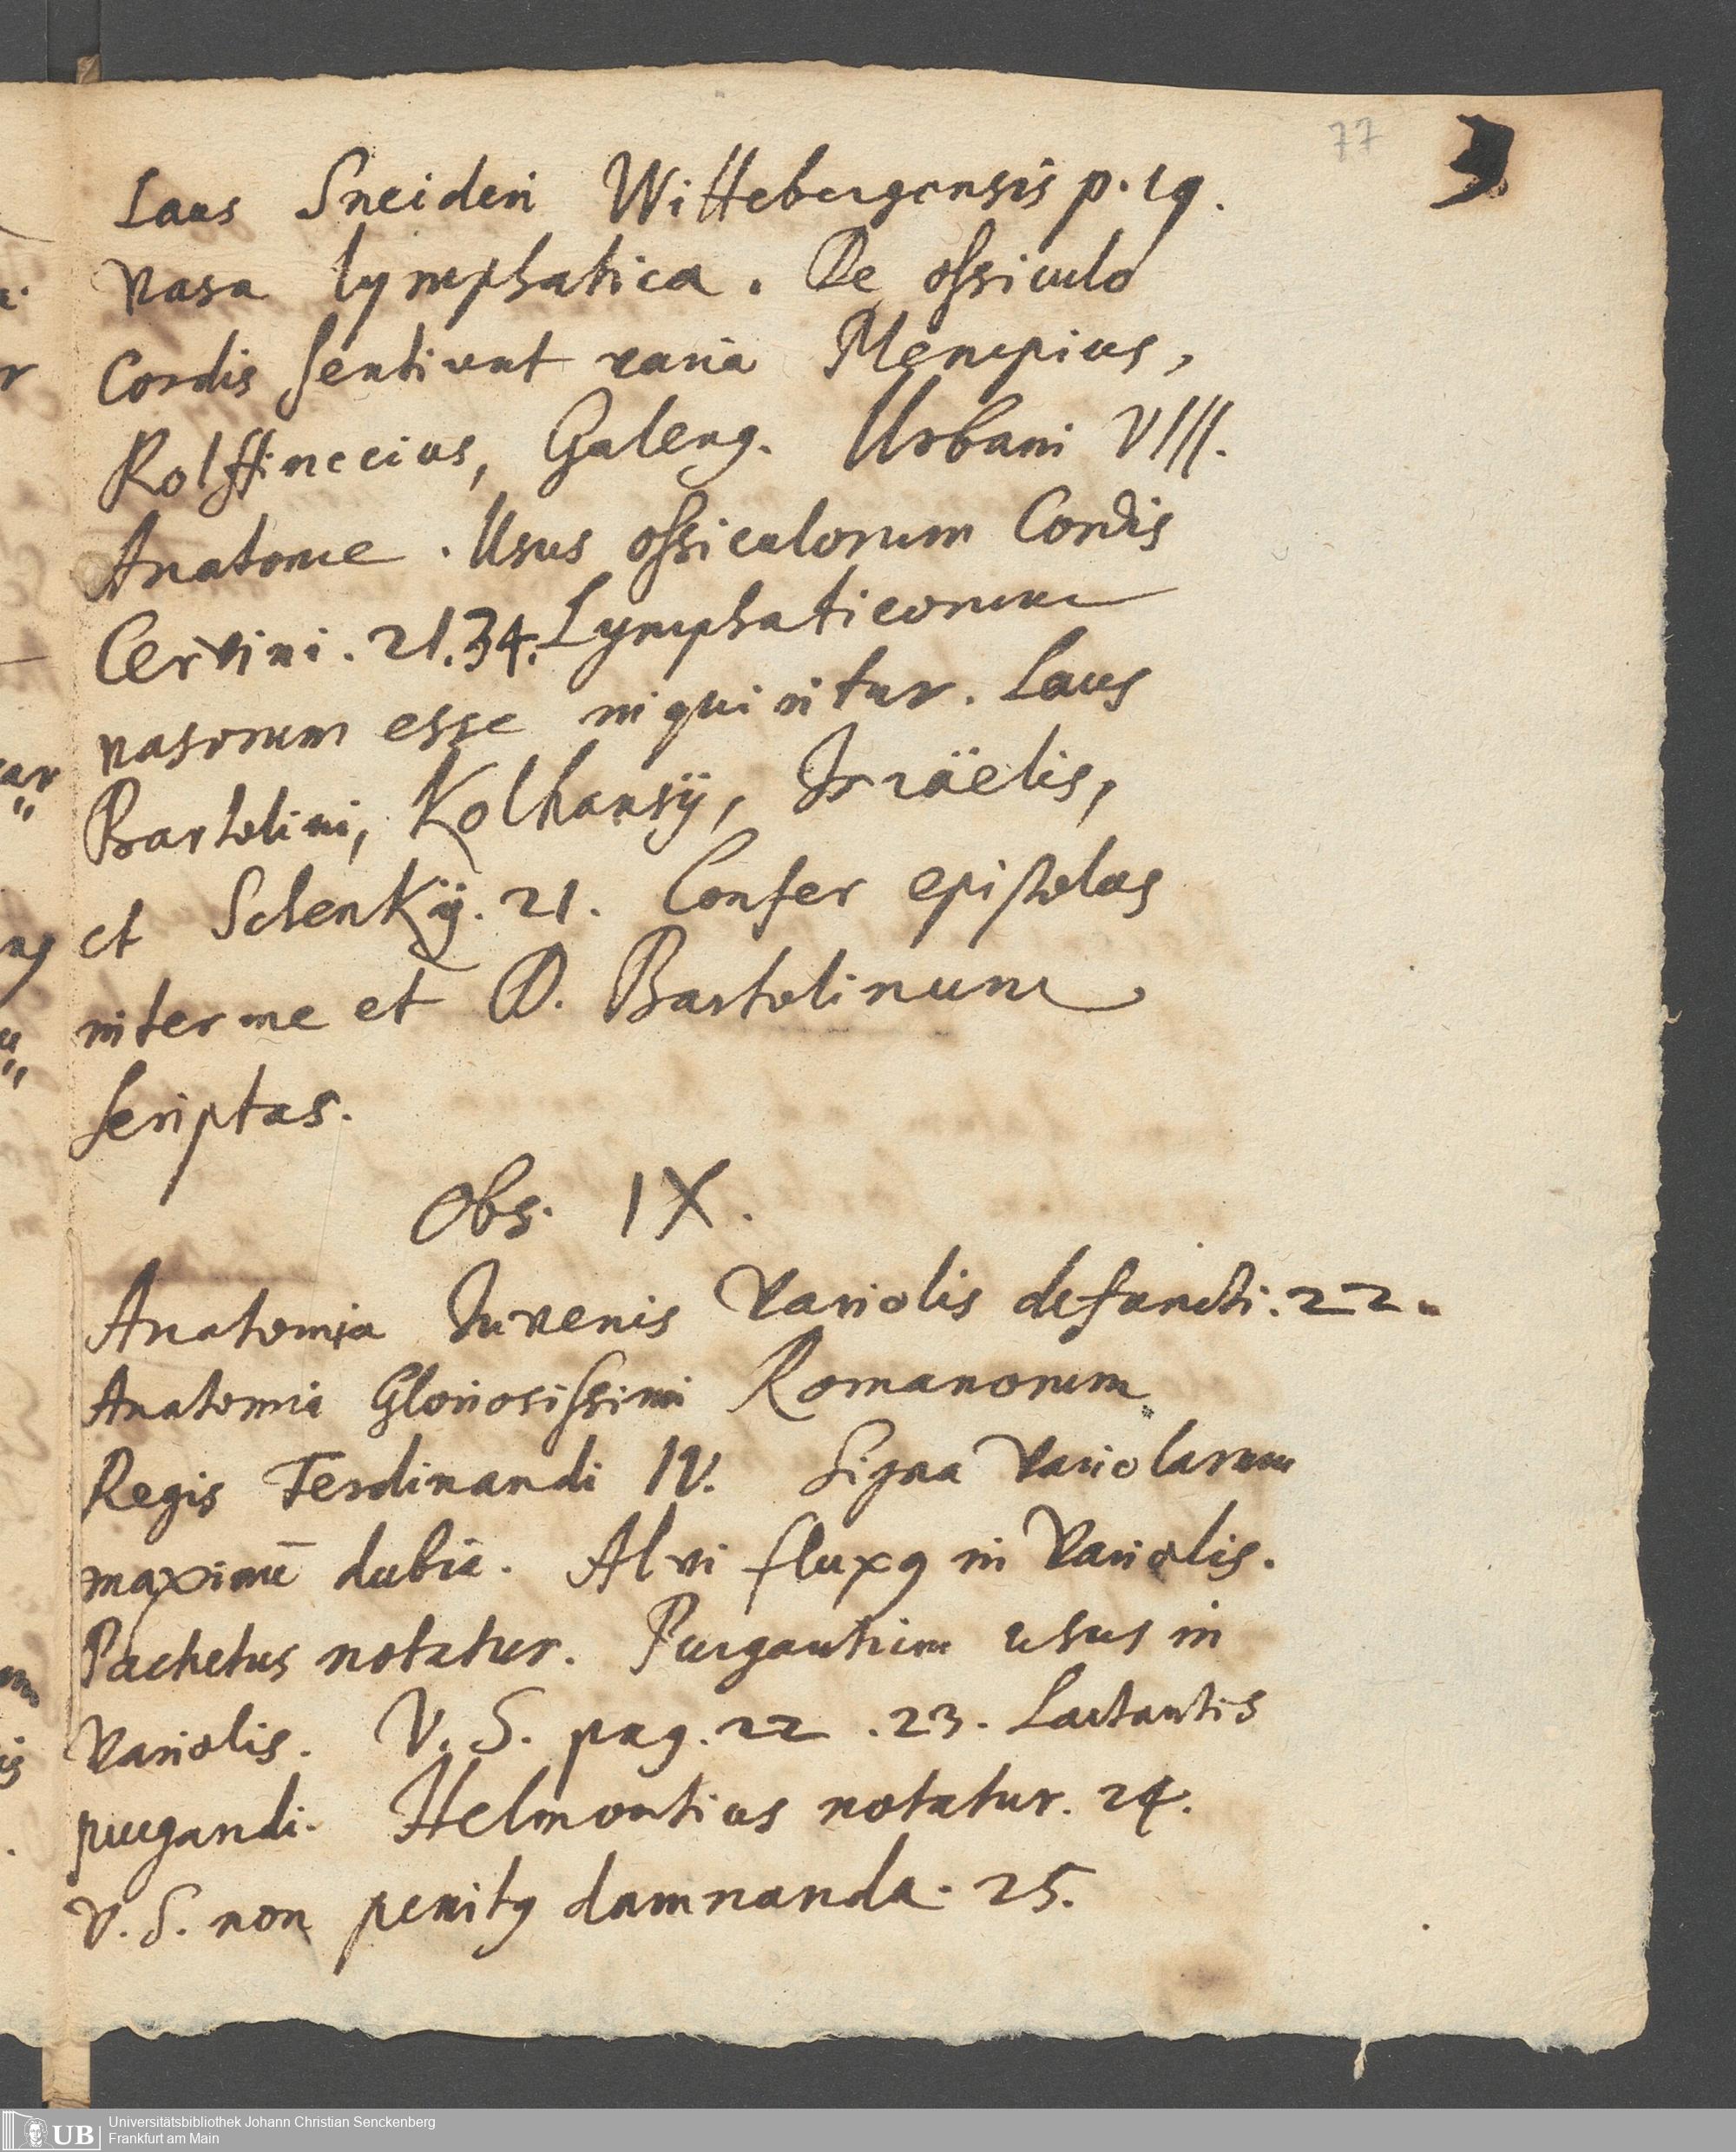 77
Laus Sneideri Wittebergensis p. 19.
vasa lymphatica. De ossiculo
Cordis sentiunt varia Plempius,
Rolffinccius, Galeng. Urbani VIII.
Anatome. Usus ossiculorum Cordis
Cervini. 21. 34. Lymphaticorum
vasorum esse inquiritur. Laus
Bartolini, Kolhansÿ, Isräelis,
et Sclenkÿ. 21. Confer epistolas
inter me et D. Bartolinum
scriptas.
Obs. IX.
Anatomia Iuvenis Variolis defuncti. 22.
Anatomia Gloriosissimi Romanorum
Regis Ferdinandi IV. Signa Variolarum
maximè dubia. Alvi fluxg in Variolis.
Pachetus notatur. Purgantium usus in
Variolis. V. S. pag. 22. 23. Lactantis
purgandi. Helmontius notatur. 24.
V. S. non penitg damnanda. 25.
UB Universitätsbibliothek Johann Christian Senckenberg
Frankfurt am Main